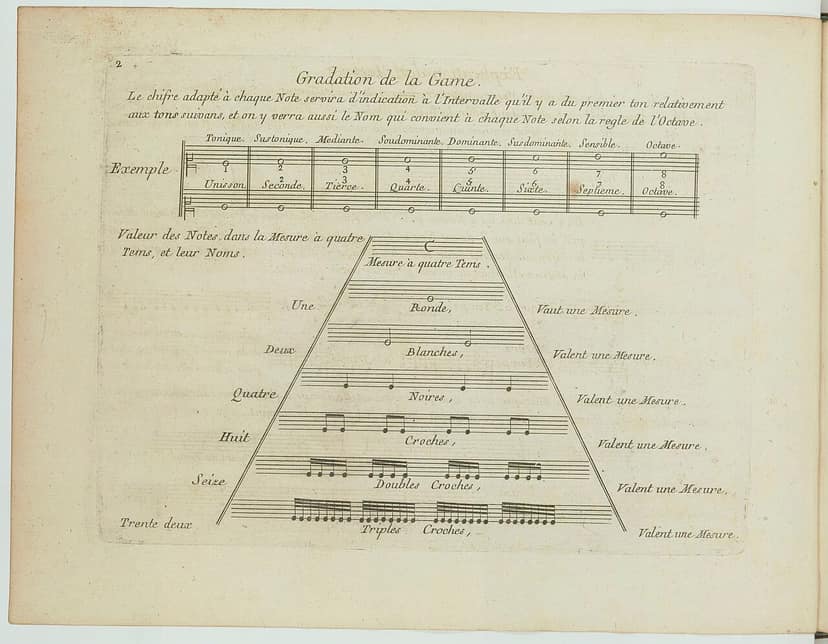 2
Gradation de la Game.
Le chifre adapté à chaque Note servira d'indication à l'Intervalle qu'il y a du premier ton relativement
aux tons suivans, et on y verra aussi le Nom qui convient à chaque Note selon la regle de l'Octave.
Tonique. Sustonique. Mediante. Soudominante. Dominante. Susdominante. Sensible. Octave.
Exemple
1 2 3 4 5 6 7 8
Unisson. Seconde. Tierce. Quarte. Quinte. Sixte. Septieme. Octave.
2 3 4 5 6 7 8
Valeur des Notes dans la Mesure à quatre
Tems, et leur Noms.
C
Mesure à quatre Tems.
Une Ronde, Vaut une Mesure.
Deux Blanches, Valent une Mesure.
Quatre Noires, Valent une Mesure.
Huit Croches, Valent une Mesure.
Seize Doubles Croches, Valent une Mesure.
Trente deux Triples Croches, Valent une Mesure.